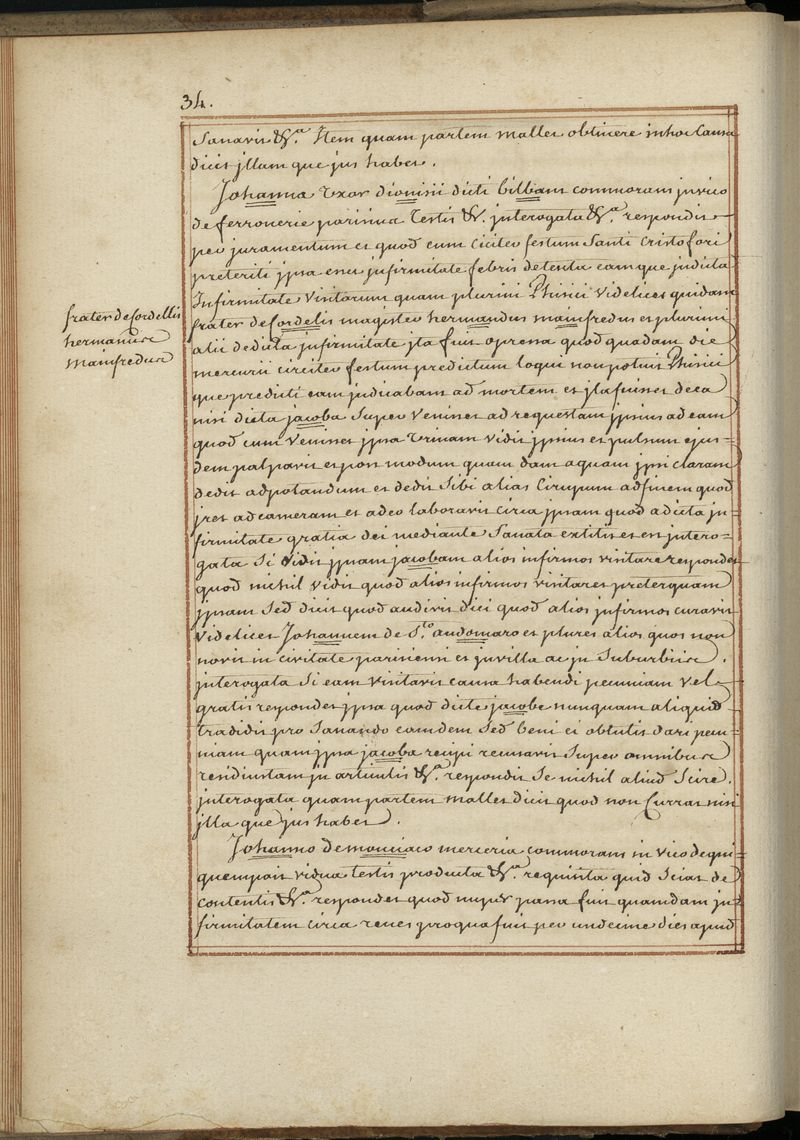 34.
Sanavit &c.a Item quam partem mallet obtinere in hoc Causa
dicit jllam que jus habet.
Johanna Uxor dionisii dicti bilbam commorans in vico
de ferronerie parisius Testis &c. interogata &c.a respondit
per juramentum et quod cum Circiter festum Santi Cristofori
preteriti jpsa erat jnfirmitate febris detenta eam que in dicta
Infirmitate Visitarunt quam plurimi Phisici Videlicet quidam
frater de fordelis magister hermandus mainfredus et plurimi
frater de fordellis
hermanus
mainfredus
alii de dicta jnfirmitate jta fuit opressa quod quadam die
mercurii circiter festum predictum loqui non potuit Phisici
que predicti eam judicabant ad mortem et jta fuisset de ea
nisi dicta jacoba Super Venisset ad requestam jpsius ad eam
quod cum Venisset jpsa Urinam Vidit jpsius et pulsum ejus=
dem palpavit et post modum quam dam aquam jpsi claram
dedit ad potandum et dedit Sibi alias Cirupum ad finem quod
jret ad cameram et adeo laboravit circa jpsam quod a dicta jn=
firmitate gratia dei mediante Sanata extitit et est intero=
gata Si Vidit jpsam jacobam alios infirmos visitare respondet
quod nichil Vidit quod alios infirmos visitaret preterquam
jpsam Sed dicit quod audivit dici quod alios jnfirmos curavit
Videlicet Johannem de S.to audomaro et plures alios quos non
novit in civitate parisiensi et in villa ac in Suburbiis.
jnterogata Si eam visitavit causa habendi pecuniam Vel
gratis respondet jpsa quod dicte jacobe nunquam aliquid
tradidit pro Sanando eamdem Sed bene ei obtulit dari pecu=
niam quam jpsa jacoba recipi recusavit Super omnibus
residuis tam in articulis &c.a respondit Se nichil aliud Scire.
jnterogata quam partem mallet dicit quod non Curras nisi
jlla que jus habet.
Johanno de monciaco merceria commorans in vico de qui=
quempoit vidua testis producta &c.a requisita quid Sciat de
contentis &c.a respondet quod nuper passa fuit quamdam in=
firmitatem circa renes pro qua fuit per undecime dies apud